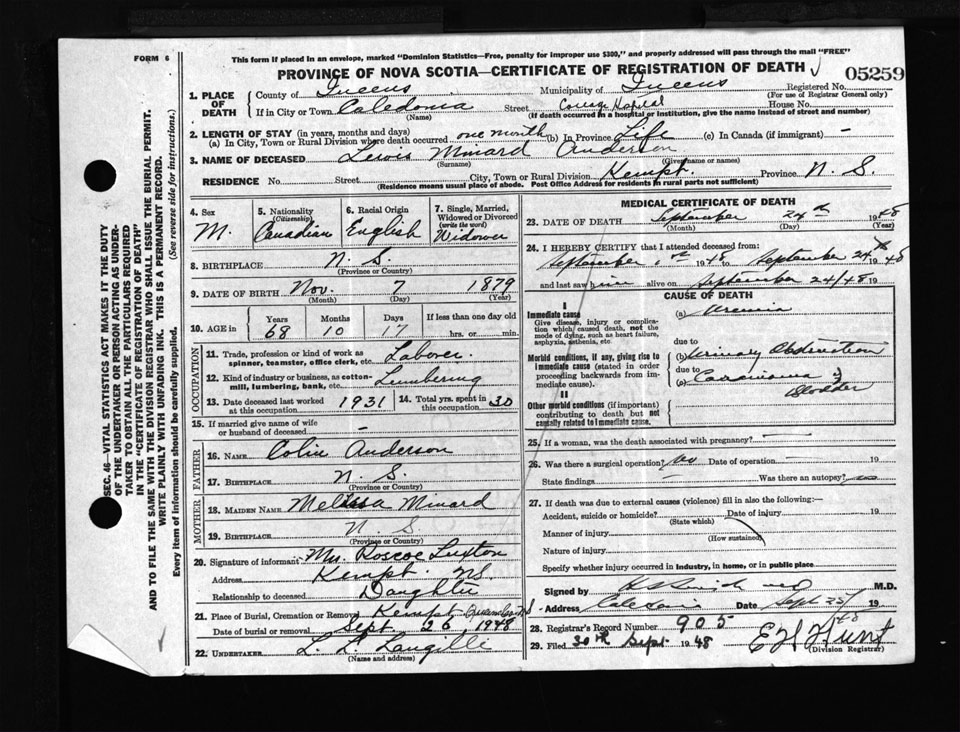 This form if placed in an envelope, marked "Dominion Statistics—Free, penalty for improper use $300," and properly addressed will pass through the mail "FREE"
FORM 6
PROVINCE OF NOVA SCOTIA—CERTIFICATE OF REGISTRATION OF DEATH
05259
SEC. 46—VITAL STATISTICS ACT MAKES IT THE DUTY
OF THE UNDERTAKER OR PERSON ACTING AS UNDER-
TAKER TO OBTAIN ALL THE PARTICULARS REQUIRED
IN THE "CERTIFICATE OF REGISTRATION OF DEATH"
AND TO FILE THE SAME WITH THE DIVISION REGISTRAR WHO SHALL ISSUE THE BURIAL PERMIT.
WRITE PLAINLY WITH UNFADING INK. THIS IS A PERMANENT RECORD.
Every item of information should be carefully supplied. (See reverse side for instructions.)
1. PLACE OF DEATH
County of Queens Municipality of Queens Registered No.
(For use of Registrar General only)
If in City or Town Caledonia Street Cottage Hospital House No.
(Name) (If death occurred in a hospital or institution, give the name instead of street and number)
2. LENGTH OF STAY (in years, months and days)
(a) In City, Town or Rural Division where death occurred one month (b) In Province Life (c) In Canada (if immigrant) -
3. NAME OF DECEASED Lewis Minard Anderson
(Surname) (Given name or names)
RESIDENCE No. Street City, Town or Rural Division Kempt. Province N. S.
(Residence means usual place of abode. Post Office Address for residents in rural parts not sufficient)
4. Sex M.
5. Nationality (Citizenship) Canadian
6. Racial Origin English
7. Single, Married, Widowed or Divorced (write the word) Widower
8. BIRTHPLACE N. S.
(Province or Country)
9. DATE OF BIRTH Nov. 7 1879
(Month) (Day) (Year)
10. AGE in Years Months Days If less than one day old
68 10 17 hrs. or min.
OCCUPATION
11. Trade, profession or kind of work as spinner, teamster, office clerk, etc. Laborer.
12. Kind of industry or business, as cotton-mill, lumbering, bank, etc. Lumbering
13. Date deceased last worked at this occupation 1931 14. Total yrs. spent in this occupation 30
15. If married give name of wife or husband of deceased -
FATHER
16. NAME Colin Anderson
17. BIRTHPLACE N. S.
(Province or Country)
MOTHER
18. MAIDEN NAME Melissa Minard
19. BIRTHPLACE N S.
(Province or Country)
20. Signature of informant Mrs. Roscoe Luxton
Address Kempt. NS.
Relationship to deceased Daughter
21. Place of Burial, Cremation or Removal Kempt Queens Co NS
Date of burial or removal Sept 26 1948
22. UNDERTAKER L. L. Langille
(Name and address)
MEDICAL CERTIFICATE OF DEATH
23. DATE OF DEATH September 24th 1948
(Month) (Day) (Year)
24. I HEREBY CERTIFY that I attended deceased from:
September 1948 to September 24 1948
and last saw him alive on September 24/48 19
CAUSE OF DEATH
I
Immediate cause (a) Uremia
Give disease, injury or complication which caused death, not the mode of dying, such as heart failure, asphyxia, asthenia, etc.
due to
(b) Urinary Obstruction
Morbid conditions, if any, giving rise to immediate cause (stated in order proceeding backwards from immediate cause).
due to
(c) Carcinoma of Bladder
II
Other morbid conditions (if important) contributing to death but not causally related to immediate cause.
25. If a woman, was the death associated with pregnancy?
26. Was there a surgical operation? No Date of operation 19
State findings Was there an autopsy? no
27. If death was due to external causes (violence) fill in also the following:—
Accident, suicide or homicide? Date of injury 19
(State which)
Manner of injury
(How sustained)
Nature of injury
Specify whether injury occurred in industry, in home, or in public place
Signed by M.D.
Address Caledonia Date Sept 25/ 19 48
28. Registrar's Record Number 905
29. Filed 30th Sept 1948 E H Hunt
(Division Registrar)